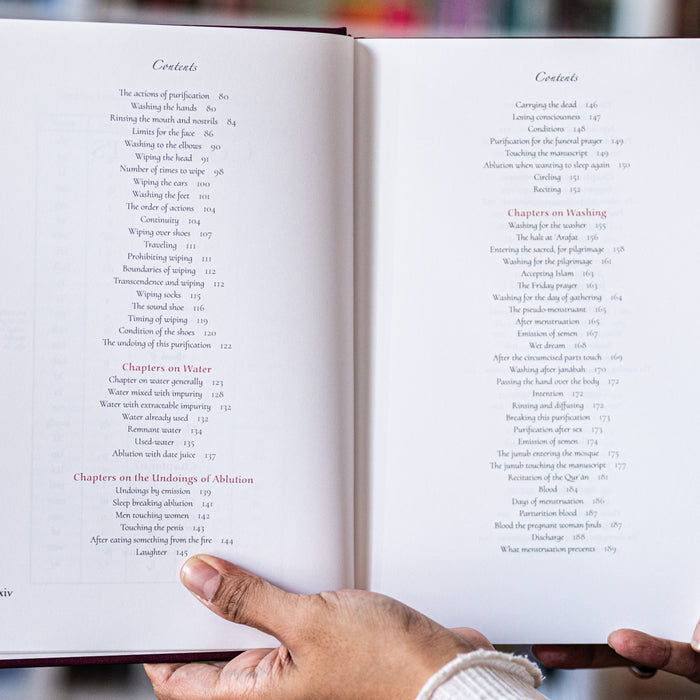 Contents
The actions of purification 80
Washing the hands 80
Rinsing the mouth and nostrils 84
Limits for the face 86
Washing to the elbows 90
Wiping the head 91
Number of times to wipe 98
Wiping the ears 100
Washing the feet 101
The order of actions 104
Continuity 104
Wiping over shoes 107
Traveling 111
Prohibiting wiping 111
Boundaries of wiping 112
Transcendence and wiping 112
Wiping socks 115
The sound shoe 116
Timing of wiping 119
Condition of the shoes 120
The undoing of this purification 122
Chapters on Water
Chapter on water generally 123
Water mixed with impurity 128
Water with extractable impurity 132
Water already used 132
Remnant water 134
Used-water 135
Ablution with date juice 137
Chapters on the Undoings of Ablution
Undoings by emission 139
Sleep breaking ablution 141
Men touching women 142
Touching the penis 143
After eating something from the fire 144
Laughter 145
xiv
Contents
Carrying the dead 146
Losing consciousness 147
Conditions 148
Purification for the funeral prayer 149
Touching the manuscript 149
Ablution when wanting to sleep again 150
Circling 151
Reciting 152
Chapters on Washing
Washing for the washer 155
The halt at ʿArafat 156
Entering the sacred, for pilgrimage 158
Washing for the pilgrimage 161
Accepting Islam 163
The Friday prayer 163
Washing for the day of gathering 164
The pseudo-menstruant 165
After menstruation 165
Emission of semen 167
Wet dream 168
After the circumcised parts touch 169
Washing after janābah 170
Passing the hand over the body 172
Intention 172
Rinsing and diffusing 172
Breaking this purification 173
Purification after sex 173
Emission of semen 174
The junub entering the mosque 175
The junub touching the manuscript 177
Recitation of the Qurʾān 181
Blood 184
Days of menstruation 186
Parturition blood 187
Blood the pregnant woman finds 187
Discharge 188
What menstruation prevents 189